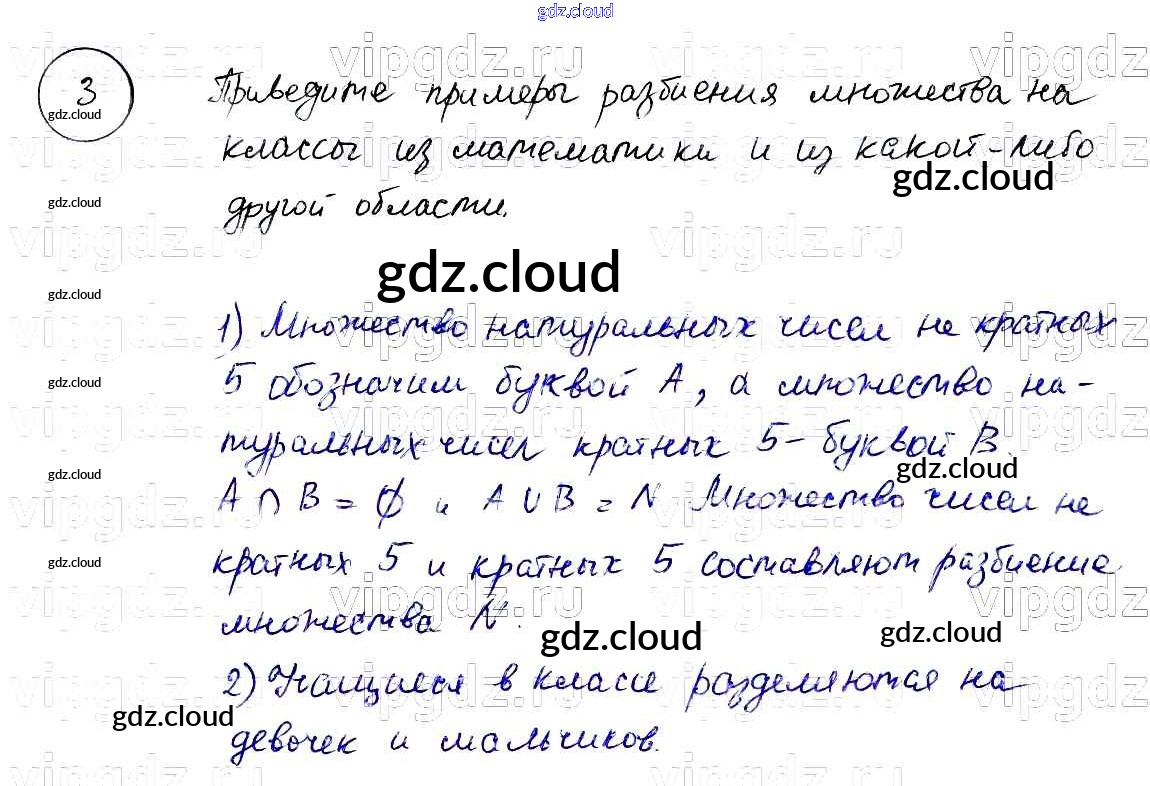 gdz.cloud
3
gdz.cloud
Приведите примеры разбиения множества на
классы из математики и из какой-либо
gdz.cloud
другой области.
gdz.cloud
gdz.cloud
gdz.cloud
1) Множество натуральных чисел не кратных
5 обозначим буквой A, а множество на-
gdz.cloud
туральных чисел кратных 5 - буквой B.
gdz.cloud
gdz.cloud
A ∩ B = ∅ и A ∪ B = N. Множество чисел не
кратных 5 и кратных 5 составляют разбиение
gdz.cloud
множества N.
gdz.cloud
gdz.cloud
2) Учащиеся в классе разделяются на
gdz.cloud
девочек и мальчиков.
vipgdz.ru